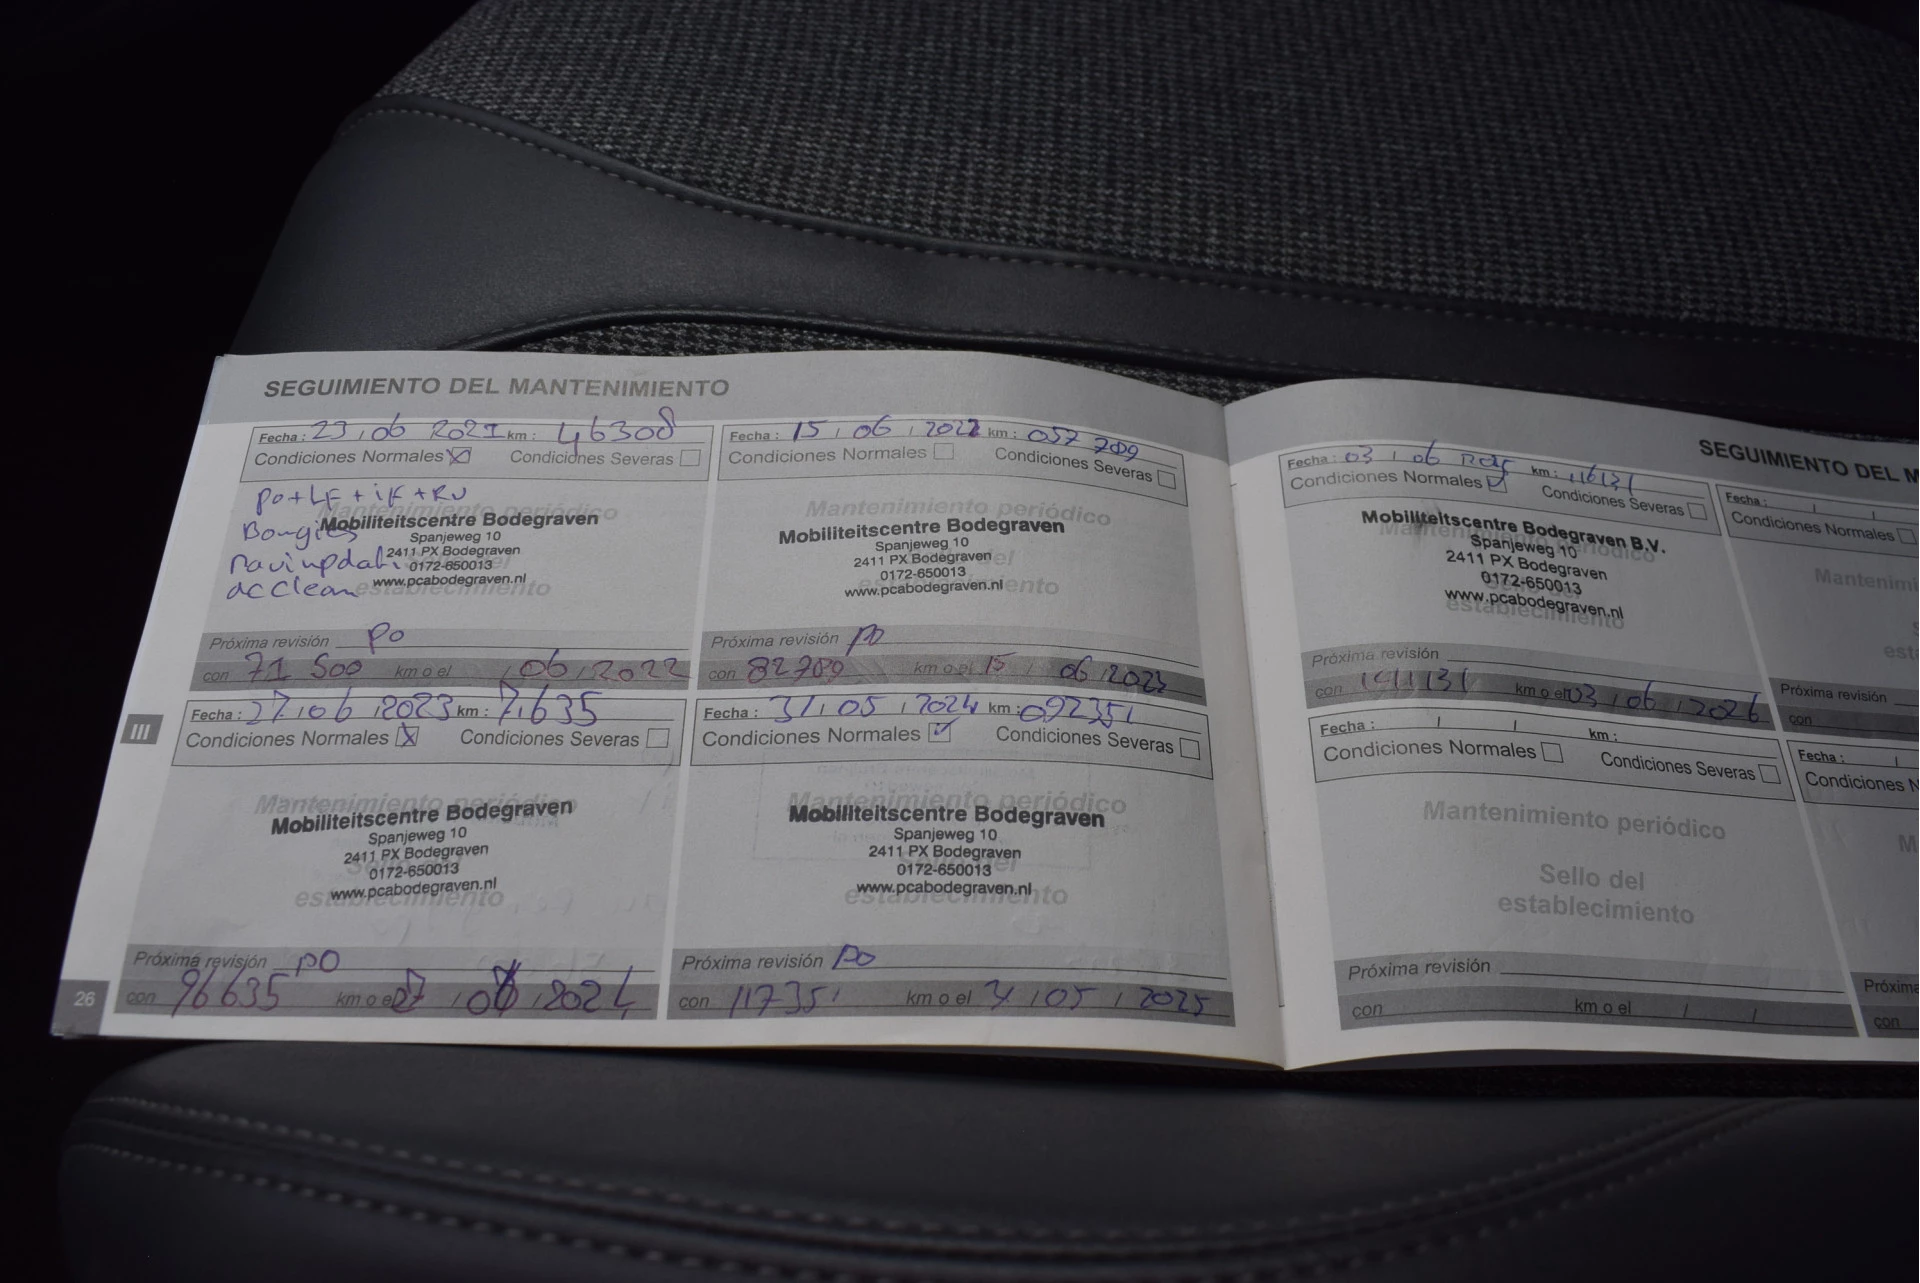 SEGUIMIENTO DEL MANTENIMIENTO
Fecha : 23 / 06 2021 km : 46308
Condiciones Normales Condiciones Severas
po + LF + iF + RV
Mantenimiento periódico
Bougies Mobiliteitscentre Bodegraven
Spanjeweg 10
navi update 2411 PX Bodegraven
0172-650013
ac clean www.pcabodegraven.nl
establecimiento
Próxima revisión po
con 71 500 km o el / 06 / 2022
Fecha : 15 / 06 / 2022 km : 057 789
Condiciones Normales Condiciones Severas
Mantenimiento periódico
Mobiliteitscentre Bodegraven
Spanjeweg 10
2411 PX Bodegraven
0172-650013
www.pcabodegraven.nl
Próxima revisión po
con 82789 km o el 15 / 06 / 2023
III
Fecha : 27 / 06 / 2023 km : 71635
Condiciones Normales Condiciones Severas
Mantenimiento periódico
Mobiliteitscentre Bodegraven
Spanjeweg 10
2411 PX Bodegraven
0172-650013
www.pcabodegraven.nl
establecimiento
Próxima revisión po
con 96635 km o el 27 / 06 / 2024
Fecha : 31 / 05 / 2024 km : 092351
Condiciones Normales Condiciones Severas
Mantenimiento periódico
Mobiliteitscentre Bodegraven
Spanjeweg 10
2411 PX Bodegraven
0172-650013
www.pcabodegraven.nl
establecimiento
Próxima revisión po
con 117351 km o el 31 / 05 / 2025
26
SEGUIMIENTO DEL M
Fecha : 03 / 06 2025 km : 116131
Condiciones Normales Condiciones Severas
Mobiliteitscentre Bodegraven B.V.
Spanjeweg 10
2411 PX Bodegraven
0172-650013
www.pcabodegraven.nl
establecimiento
Próxima revisión
con 141131 km o el 03 / 06 / 2026
Fecha : / / km :
Condiciones Normales Condiciones Severas
Mantenimiento periódico
Sello del
establecimiento
Próxima revisión
con km o el / /
Fecha : / /
Condiciones Normales
Mantenimi
est
Próxima revisión
con
Fecha : /
Condiciones N
M
Próxima
con